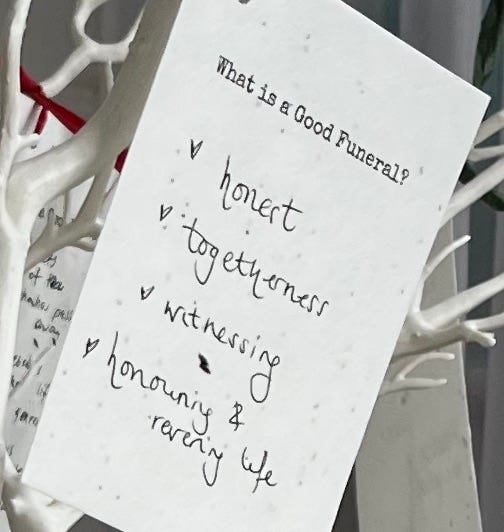 What is a Good Funeral?
♥ honest
♥ togetherness
♥ witnessing
♥ honouring &
revering life
of the